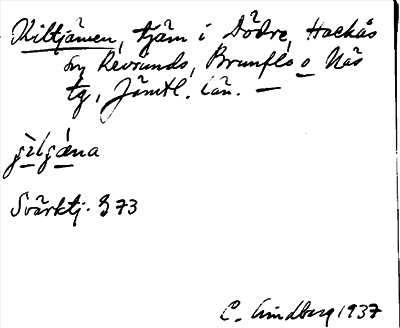 Kiltjärnen, tjärn i Dödre, Hackås
sn, Revsunds, Brunflo o Näs
tg, Jämtl. län. —
jìlʒǽna
Svärktj. § 73
C. Lindberg 1937